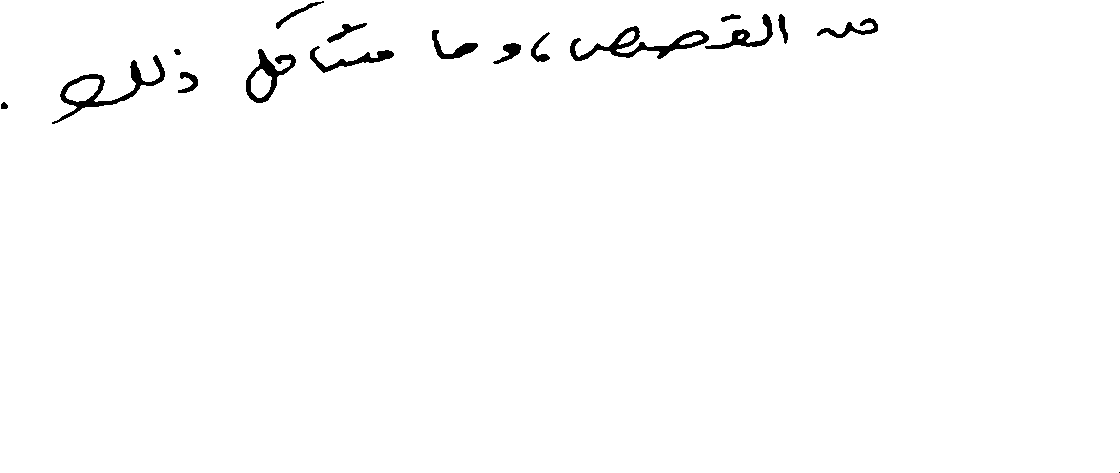 من القصص، وما شاكل ذلك.